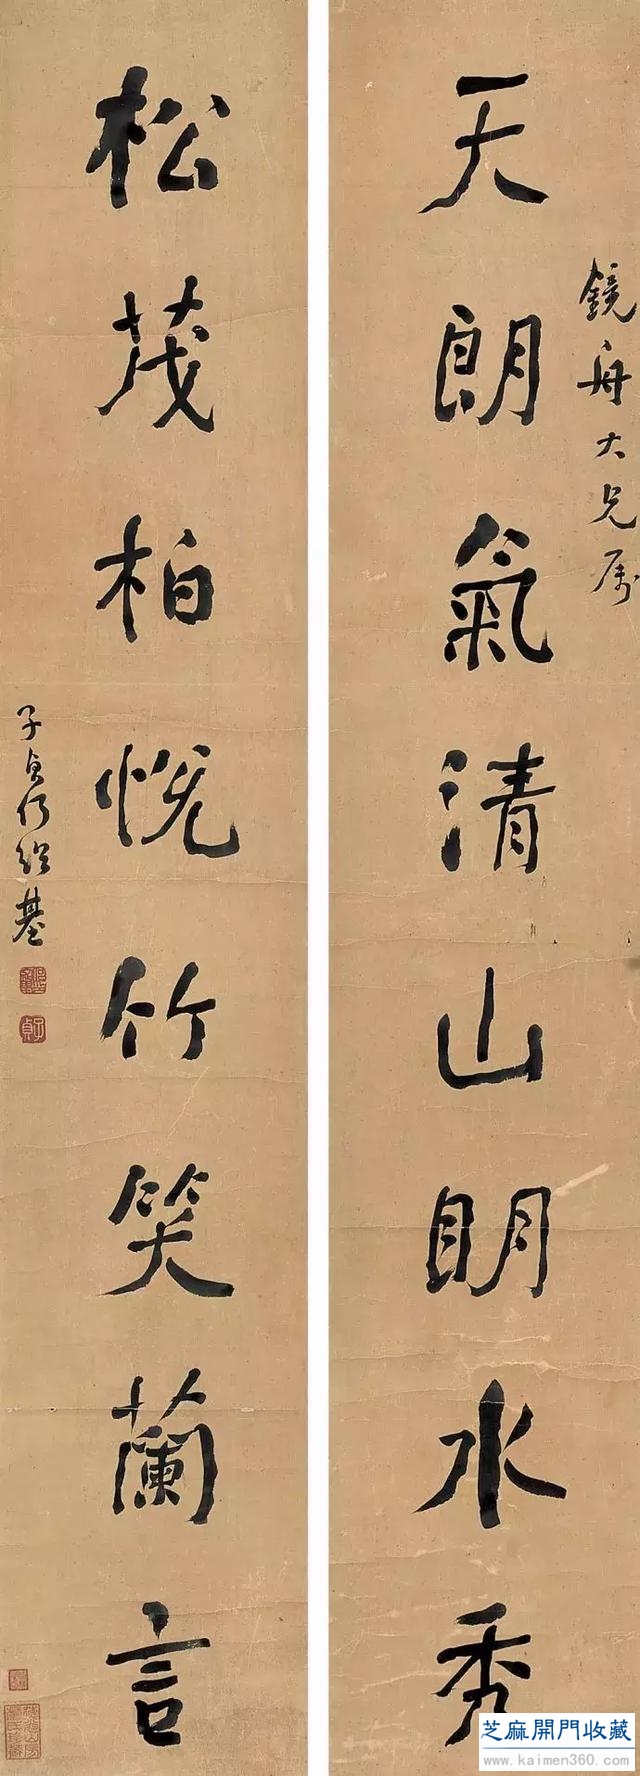 鏡舟大兄属
天朗氣清山明水秀
松茂柏悅竹笑蘭言
子貞何紹基
子貞
芝麻開門收藏
www.kaimen360.com